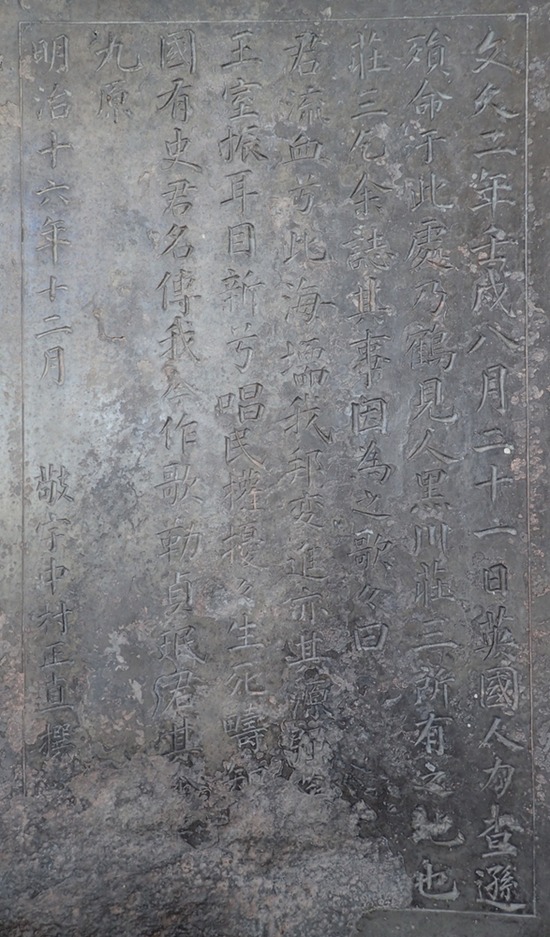 文久二年壬戌八月二十一日英國人力査遜
殞命于此處乃鶴見人黒川荘三所有之地也
荘三乞余誌其事因為之歌々曰
君流血兮此海壖我邦変進亦其源
王室振耳目新兮唱民権擾々生死疇知
國有史君名傳我今作歌勒貞珉君其
九原
明治十六年十二月 敬宇中村正直撰